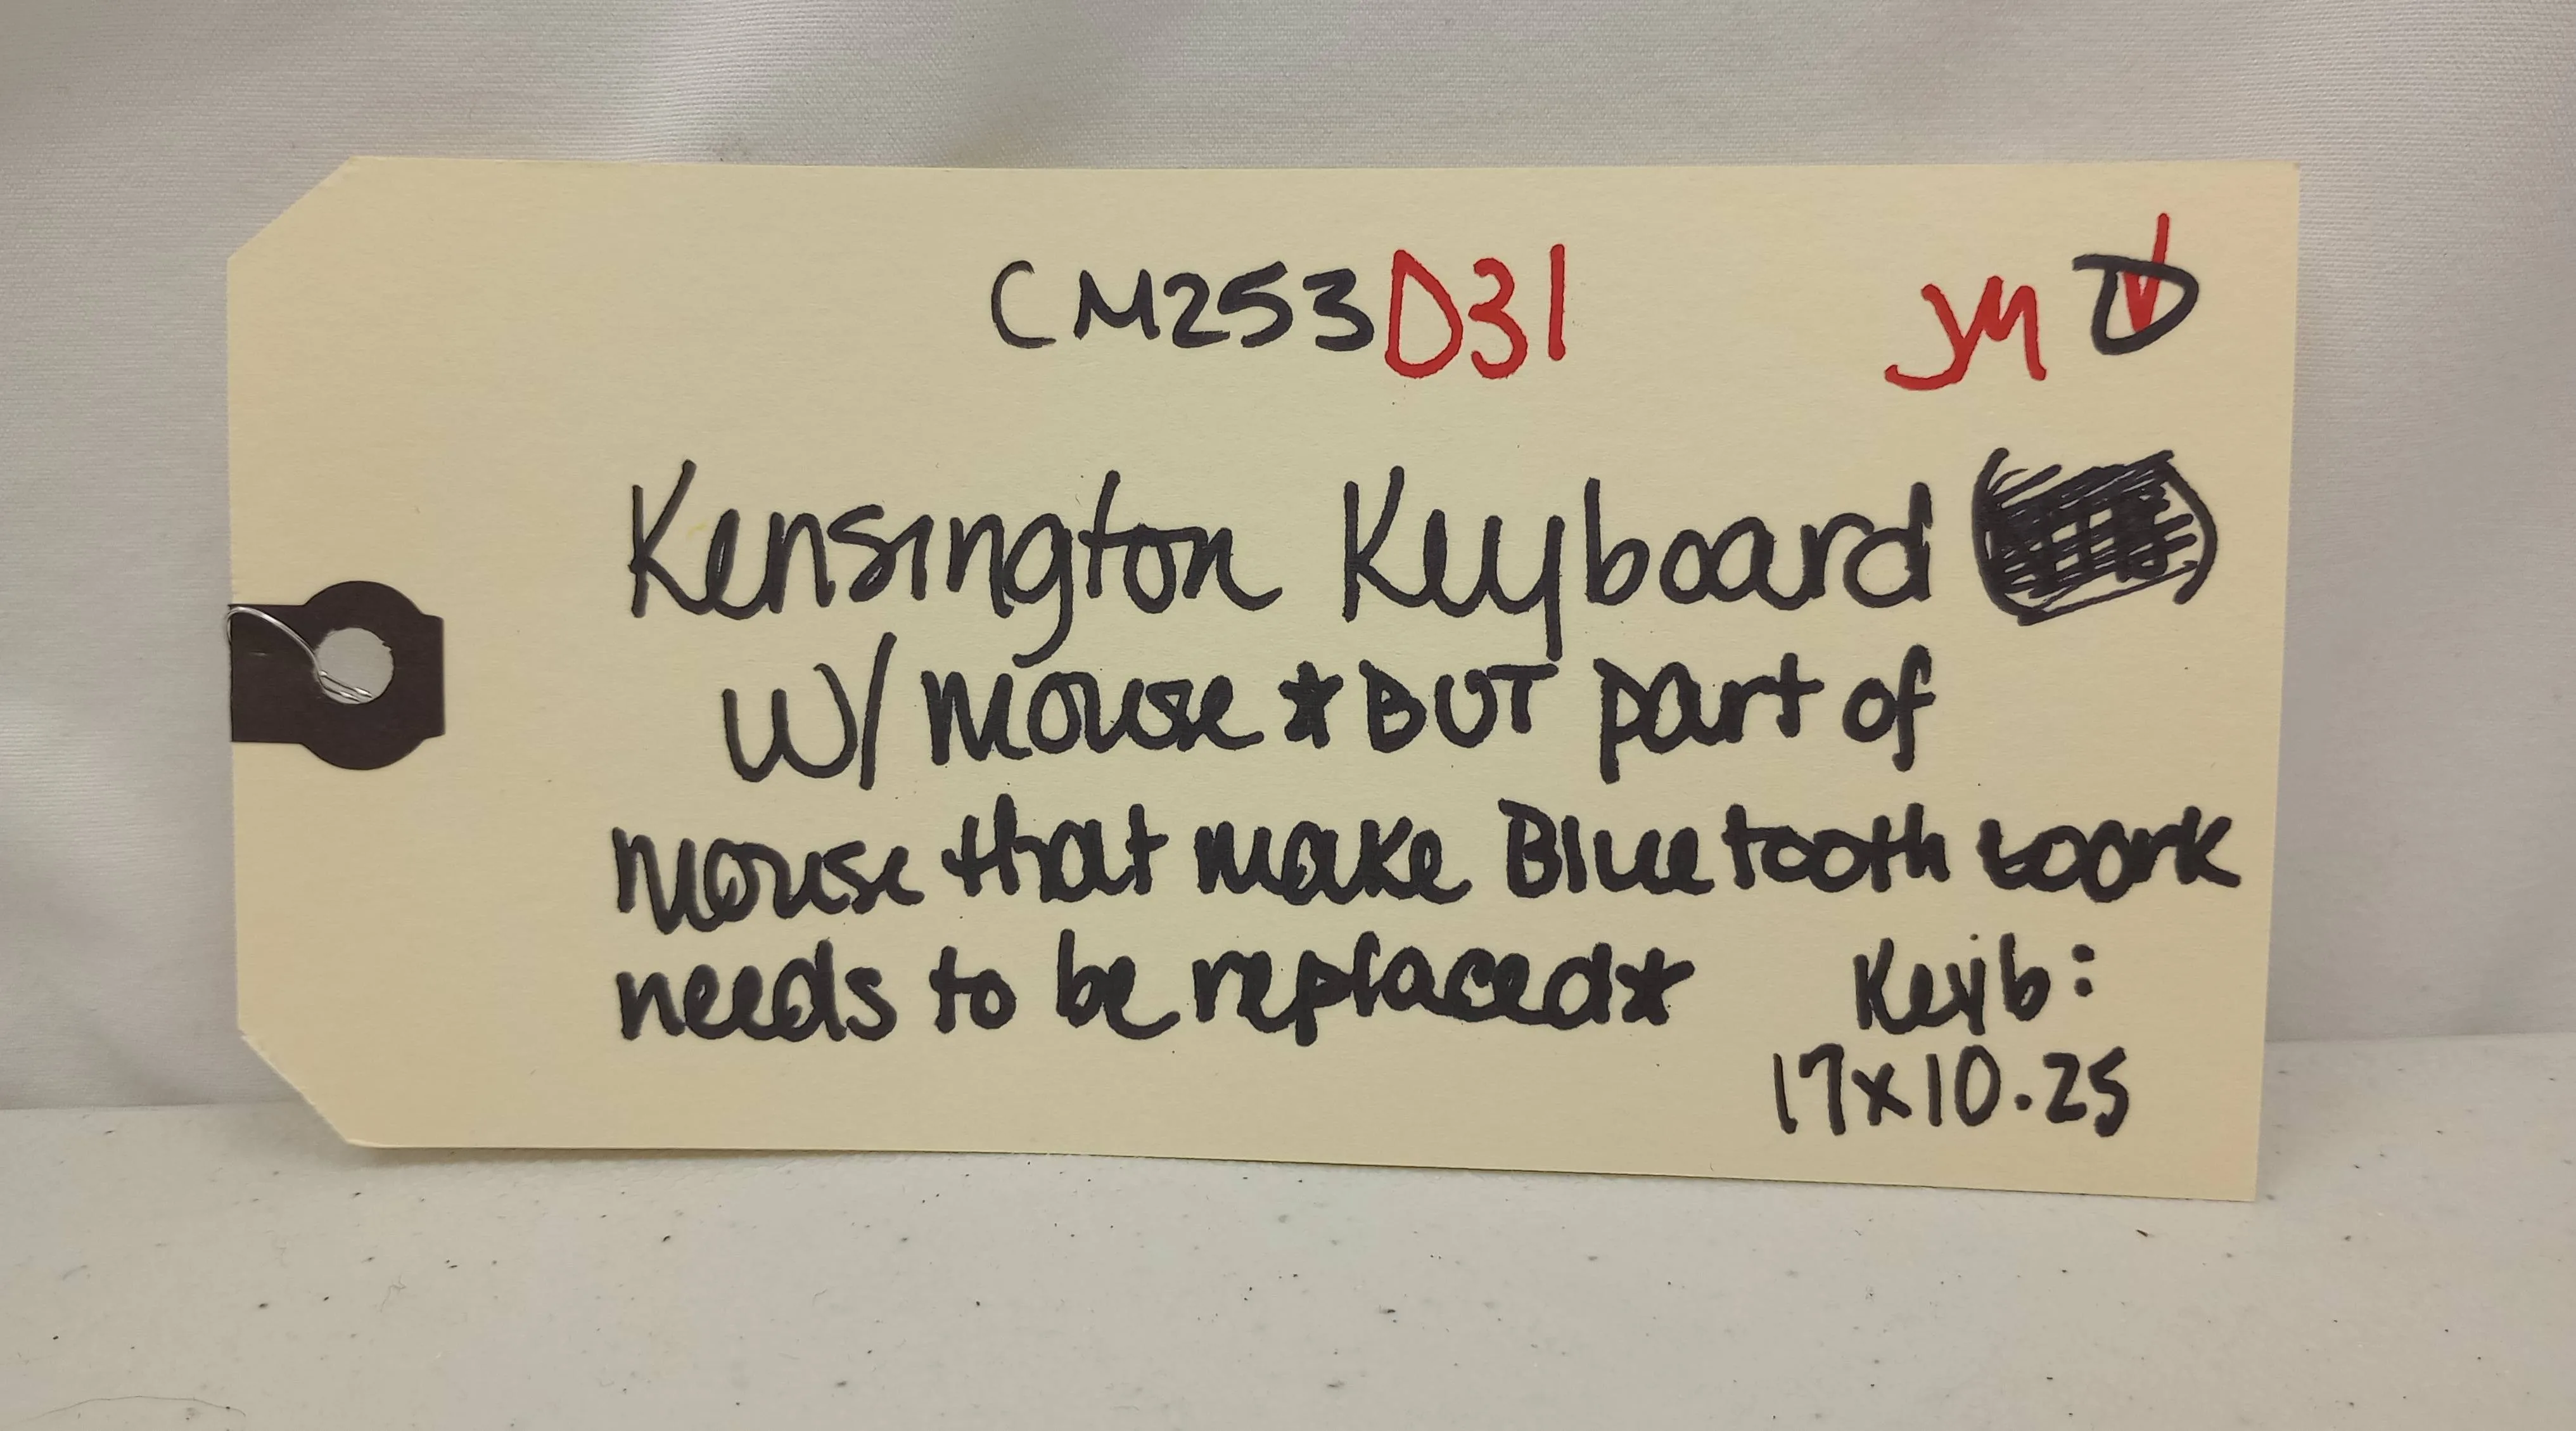 CM253D31 JM D
Kensington Keyboard
W/ mouse *BUT part of
mouse that make Bluetooth work
needs to be replaced* Keyb:
17x10.25